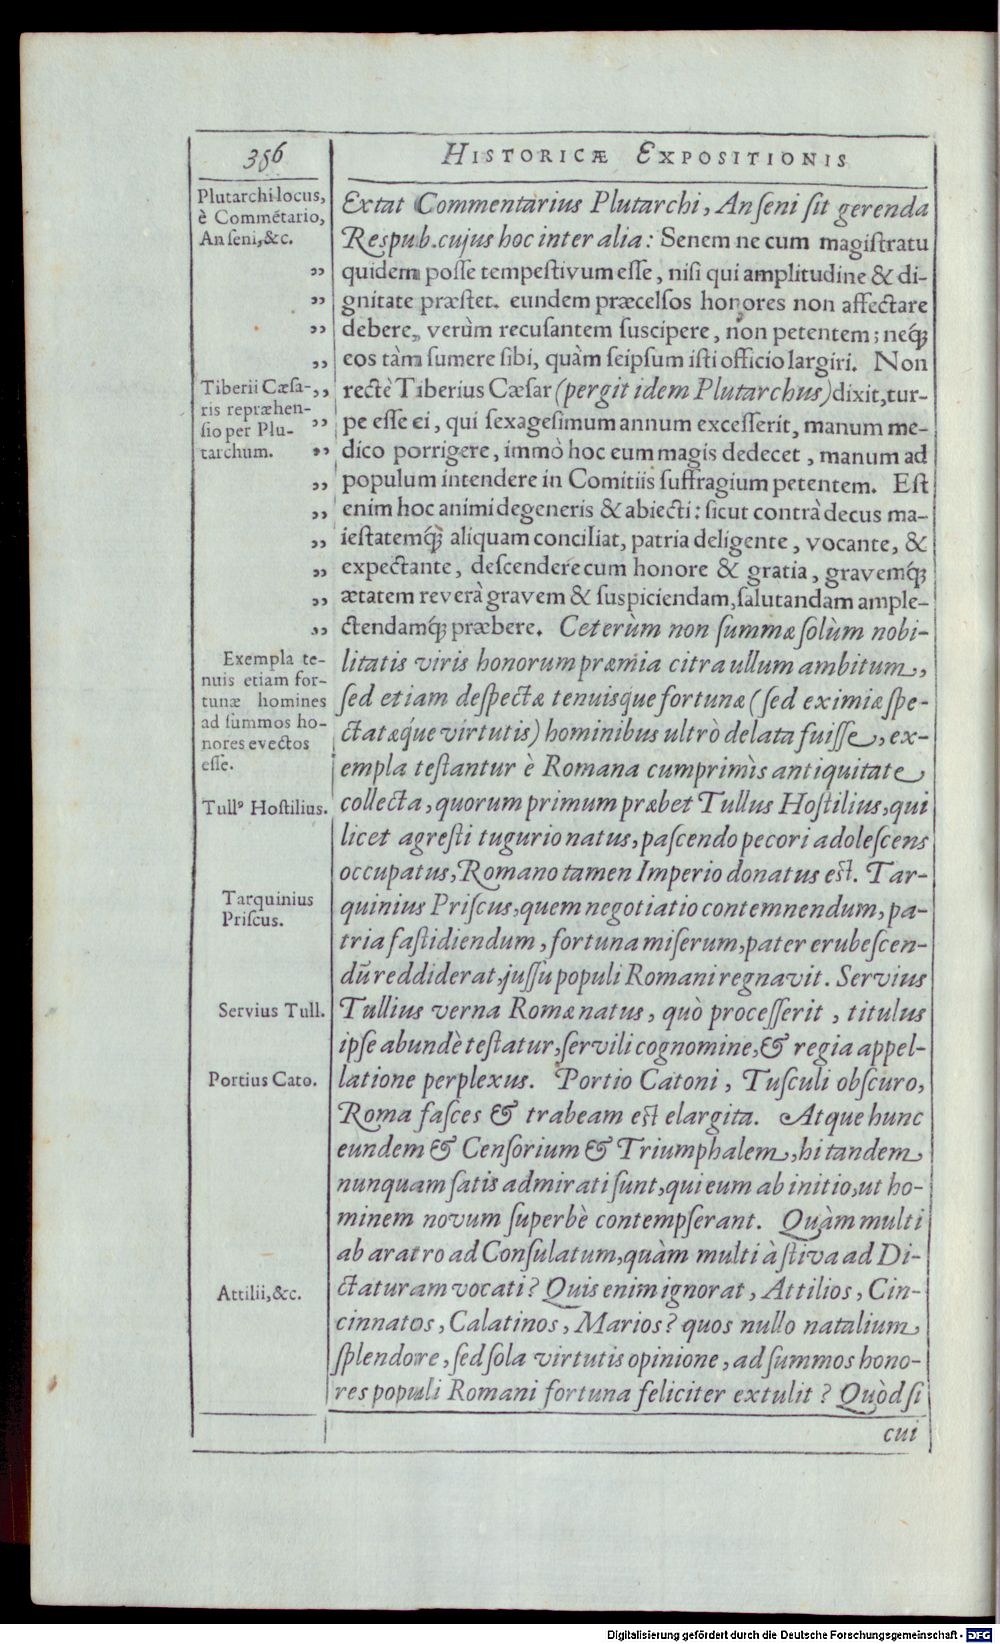 386
HISTORICÆ EXPOSITIONIS
Plutarchi locus,
è Commētario,
An seni, &c.
Extat Commentarius Plutarchi, An seni sit gerenda
Respub. cujus hoc inter alia: Senem ne cum magistratu
„ quidem posse tempestivum esse, nisi qui amplitudine & di-
„ gnitate præstet. eundem præcelsos honores non affectare
„ debere, verùm recusantem suscipere, non petentem; neq́;
„ eos tàm sumere sibi, quàm seipsum isti officio largiri. Non
Tiberii Cæsa-
ris repræhen-
sio per Plu-
tarchum.
„ rectè Tiberius Cæsar (pergit idem Plutarchus) dixit, tur-
„ pe esse ei, qui sexagesimum annum excesserit, manum me-
„ dico porrigere, immò hoc eum magis dedecet, manum ad
„ populum intendere in Comitiis suffragium petentem. Est
„ enim hoc animi degeneris & abiecti: sicut contrà decus ma-
„ iestatemq́; aliquam conciliat, patria deligente, vocante, &
„ expectante, descendere cum honore & gratia, gravemq́;
„ ætatem reverà gravem & suspiciendam, salutandam ample-
„ ctendamq́; præbere. Ceterùm non summæ solùm nobi-
Exempla te-
nuis etiam for-
tunæ homines
ad summos ho-
nores evectos
esse.
litatis viris honorum præmia citra ullum ambitum,
sed etiam despectæ tenuisque fortunæ (sed eximiæ spe-
ctatæq́ue virtutis) hominibus ultrò delata fuisse, ex-
empla testantur è Romana cumprimìs antiquitate
Tullꝰ Hostilius.
collecta, quorum primum præbet Tullus Hostilius, qui
licet agresti tugurio natus, pascendo pecori adolescens
occupatus, Romano tamen Imperio donatus est. Tar-
Tarquinius
Priscus.
quinius Priscus, quem negotiatio contemnendum, pa-
tria fastidiendum, fortuna miserum, pater erubescen-
dū reddiderat, jussu populi Romani regnavit. Servius
Servius Tull.
Tullius verna Romæ natus, quò processerit, titulus
ipse abundè testatur, servili cognomine, & regia appel-
Portius Cato.
latione perplexus. Portio Catoni, Tusculi obscuro,
Roma fasces & trabeam est elargita. Atque hunc
eundem & Censorium & Triumphalem, hi tandem
nunquam satis admirati sunt, qui eum ab initio, ut ho-
minem novum superbè contempserant. Quàm multi
ab aratro ad Consulatum, quàm multi à stiva ad Di-
Attilii, &c.
ctaturam vocati? Quis enim ignorat, Attilios, Cin-
cinnatos, Calatinos, Marios? quos nullo natalium
splendore, sed sola virtutis opinione, ad summos hono-
res populi Romani fortuna feliciter extulit? Quòd si
cui
Digitalisierung gefördert durch die Deutsche Forschungsgemeinschaft - DFG